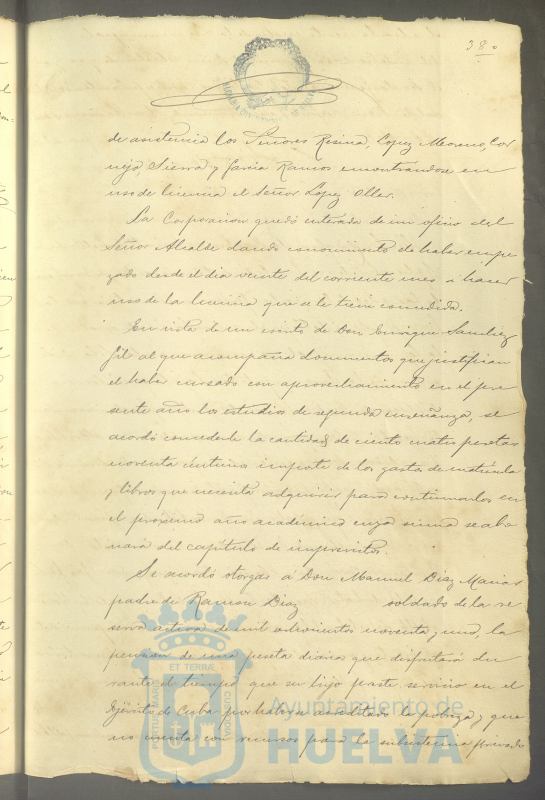 38.
de asistencia los Señores Resina, Lopez Moreno, Cor
nejo Sierra y Garcia Ramos encontrandose en
uso de licencia el Señor Lopez Oller.
La Corporacion quedó enterada de un oficio del
Señor Alcalde dando conocimiento de haber empe
zado desde el dia veinte del corriente mes á hacer
uso de la licencia que se le tiene concedida.
En vista de un escrito de Don Enrique Sanchez
Gil al que acompaña documentos que justifican
el haber cursado con aprovechamiento en el pre
sente año los estudios de segunda enseñanza, se
acordó concederle la cantidad de ciento cuatro pesetas
noventa centimos importe de los gastos de matricula
y libros que necesita adquirir para continuarlos en
el proximo año académico cuya suma se abo
nará del capítulo de imprevistos.
Se acordó otorgar á Don Manuel Diaz Macias
padre de Ramon Diaz soldado de la re
serva activa de mil ochocientos noventa y uno, la
pension de una peseta diaria que disfrutará du
rante el tiempo que su hijo preste servicio en el
Ejército de Cuba por haber acreditado la pobreza y que
no cuenta con recursos para la subsistencia privado
ET TERRAE
PORTUS MARIS
CUSTODIA
Ayuntamiento de
HUELVA